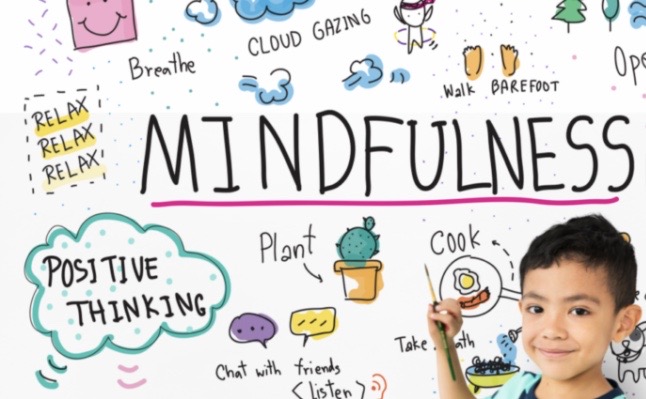 CLOUD GAZING
Breathe
Walk BAREFOOT
Ope
RELAX
RELAX
RELAX
MINDFULNESS
POSITIVE
THINKING
Plant
Cook
Chat with friends
<listen>
Take